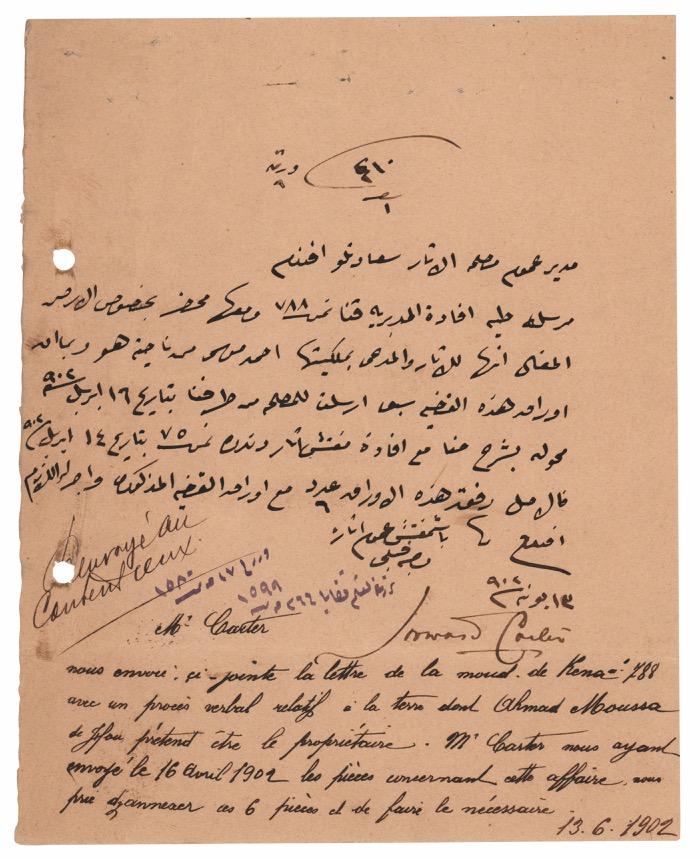 ورقة
٦
٤١٠
مدير عموم مصلحة الاثار سعادتلو افندم
مرسل طيه افادة المديريه قنا نمرة ٧٨٨ ومعها محضر بخصوص الارض
المقال انها للاثار والمدعى بملكيتها احمد موسى من ناحية هو وبما ان
اوراق هذه القضيه سبق ارسلت للمصلحه من طرفنا بتاريخ ١٦ ابريل سنة ٩٠٢
محوله بشرح منا مع افادة مفتش اثار دندره نمرة ٧٥ بتاريخ ١٤ ابريل سنة ٩٠٢
فالامل رفق هذه الاوراق عدد ٦ مع اوراق القضيه المذكوره واجرا اللازم
افندم
باشمفتش عموم اثار
وجه قبلي
١٣ يونيه سنة ٩٠٢
Howard Carter
envoyé au
Contentieux.
١٥٩٨
Mr Carter
nous envoie ci-jointe la lettre de la moud. de Kena no 788
avec un procès verbal relatif à la terre dont Ahmad Moussa
de Hou prétend être le propriétaire. Mr Carter nous ayant
envoyé le 16 Avril 1902 les pièces concernant cette affaire, nous
prie d'annexer ces 6 pièces et de faire le nécessaire.
13.6.1902